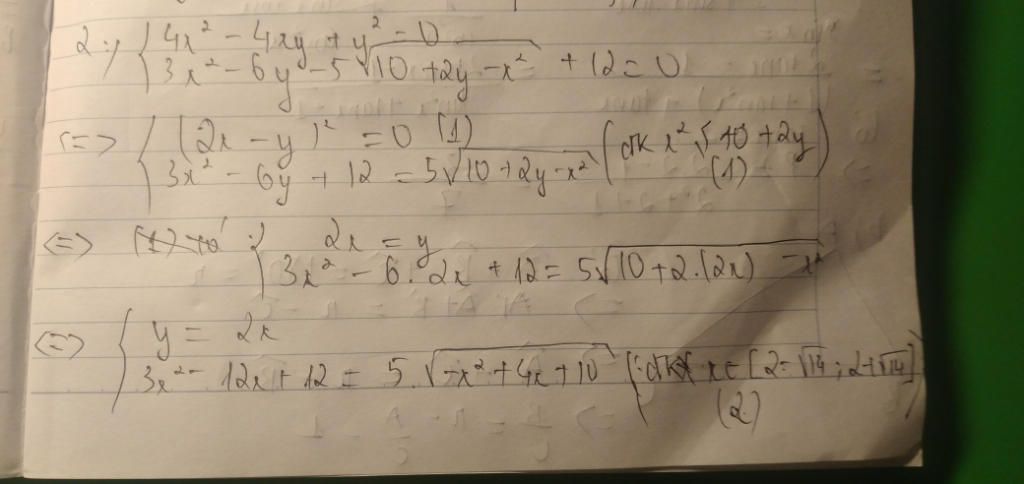 2:) { 4x² - 4xy + y² = 0
3x² - 6y - 5√(10 + 2y - x²) + 12 = 0
<=> { (2x - y)² = 0 (1)
3x² - 6y + 12 = 5√(10 + 2y - x²) (đk x² ≤ 10 + 2y) (1)
<=> { 2x = y
3x² - 6.2x + 12 = 5√(10 + 2.(2x) - x²)
<=> { y = 2x
3x² - 12x + 12 = 5.√(-x² + 4x + 10) (đk x ∈ [2-√14; 2+√14]) (2)